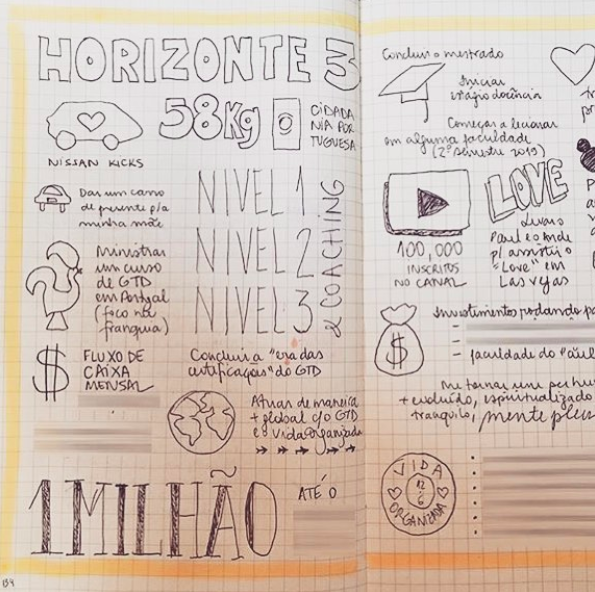 HORIZONTE 3
NISSAN KICKS
58Kg
CIDADA
NIA POR
TUGUESA
Dar um carro
de presente p/a
minha mãe
NIVEL 1
NIVEL 2
NIVEL 3
& COACHING
Ministrar
um curso
de GTD
em Portugal
(foco na
franquia)
$
FLUXO DE
CAIXA
MENSAL
Concluir a "era das
certificações" do GTD
Atuar de maneira
+ global c/o GTD
e o Vida Organizada
1 MILHÃO
ATÉ O
134
Concluir o mestrado
Iniciar
estágio docência
Começar a lecionar
em alguma faculdade
(2º semestre 2019)
100,000
INSCRITOS
NO CANAL
LOVE
Levar o
Paul e o
p/ assistir o
"Love" em
Las Vegas
$
Investimentos
- faculdade do
me tornar uma
+ evoluído, espiritualizado
tranquilo, mente
VIDA
ORGANIZADA